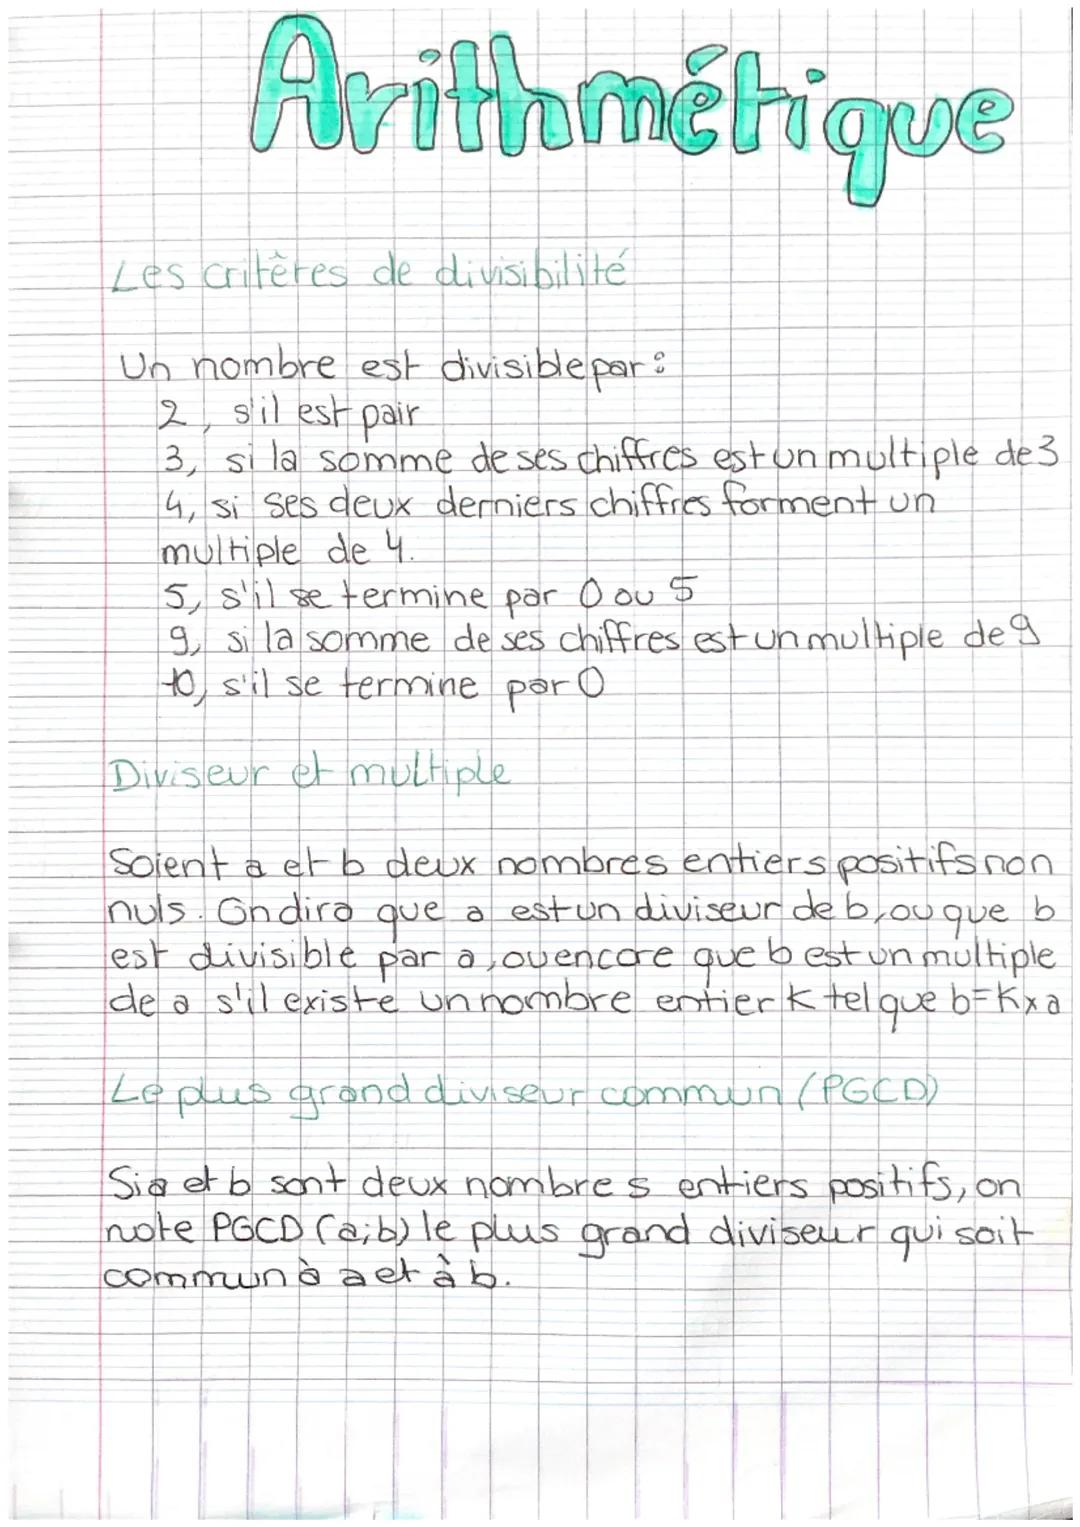 Arithmétique
Les critères de divisibilité
Un nombre est divisible par :
2, s'il est pair
3, si la somme de ses chiffres est un multiple de 3
4, si ses deux derniers chiffres forment un
multiple de 4.
5, s'il se termine par 0 ou 5
9, si la somme de ses chiffres est un multiple de 9
10, s'il se termine par 0
Diviseur et multiple
Soient a et b deux nombres entiers positifs non
nuls. On dira que a est un diviseur de b, ou que b
est divisible par a, ou encore que b est un multiple
de a s'il existe un nombre entier k tel que b=k×a
Le plus grand diviseur commun (PGCD)
Si a et b sont deux nombres entiers positifs, on
note PGCD (a;b) le plus grand diviseur qui soit
commun à a et à b.